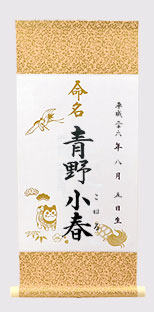 平成二十六年八月五日生
命名
青野小春